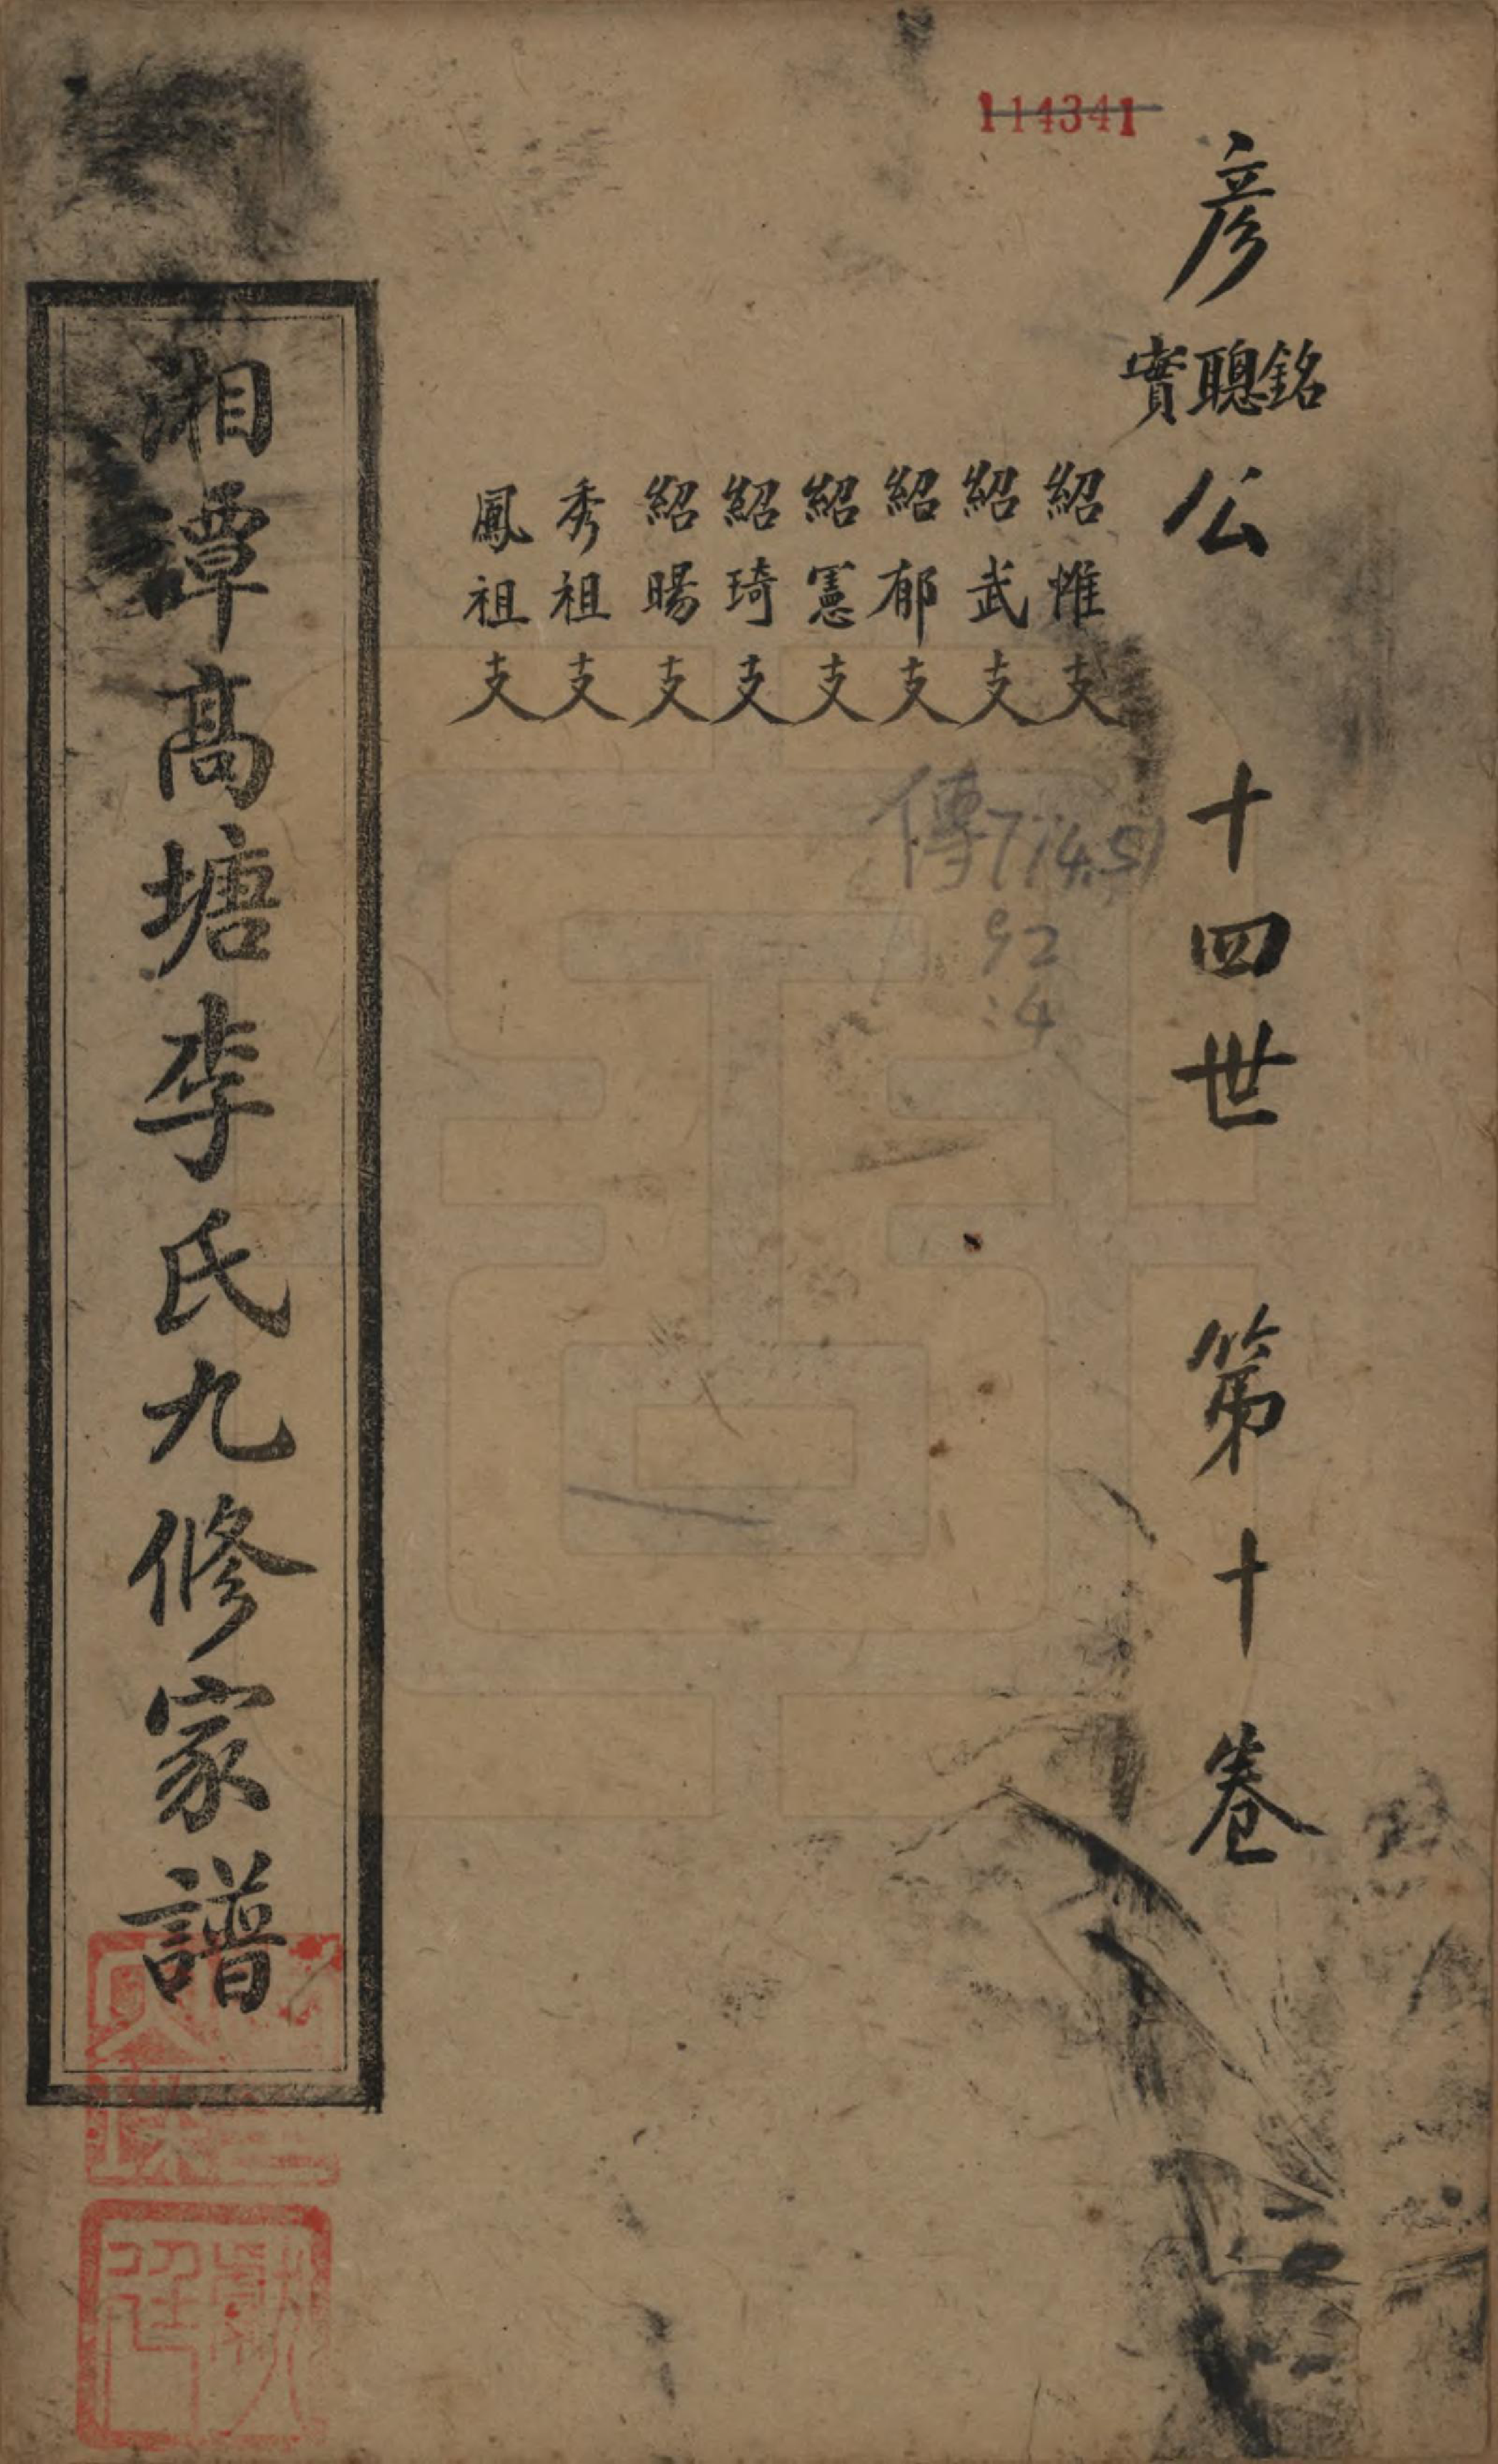 114341
彥
銘聰實
公
十四世
第十卷
紹惟支
紹武支
紹郁支
紹憲支
紹琦支
紹暘支
秀祖支
鳳祖支
傳774.51
92
:4
湘潭高塘李氏九修家譜